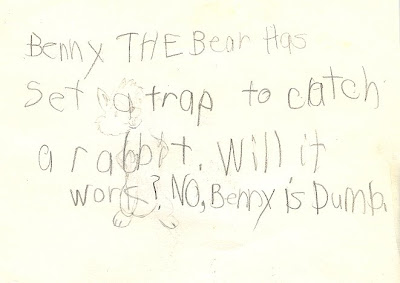 Benny THE Bear Has
Set a trap to catch
a rabbit. Will it
work? NO, Benny is Dumb.